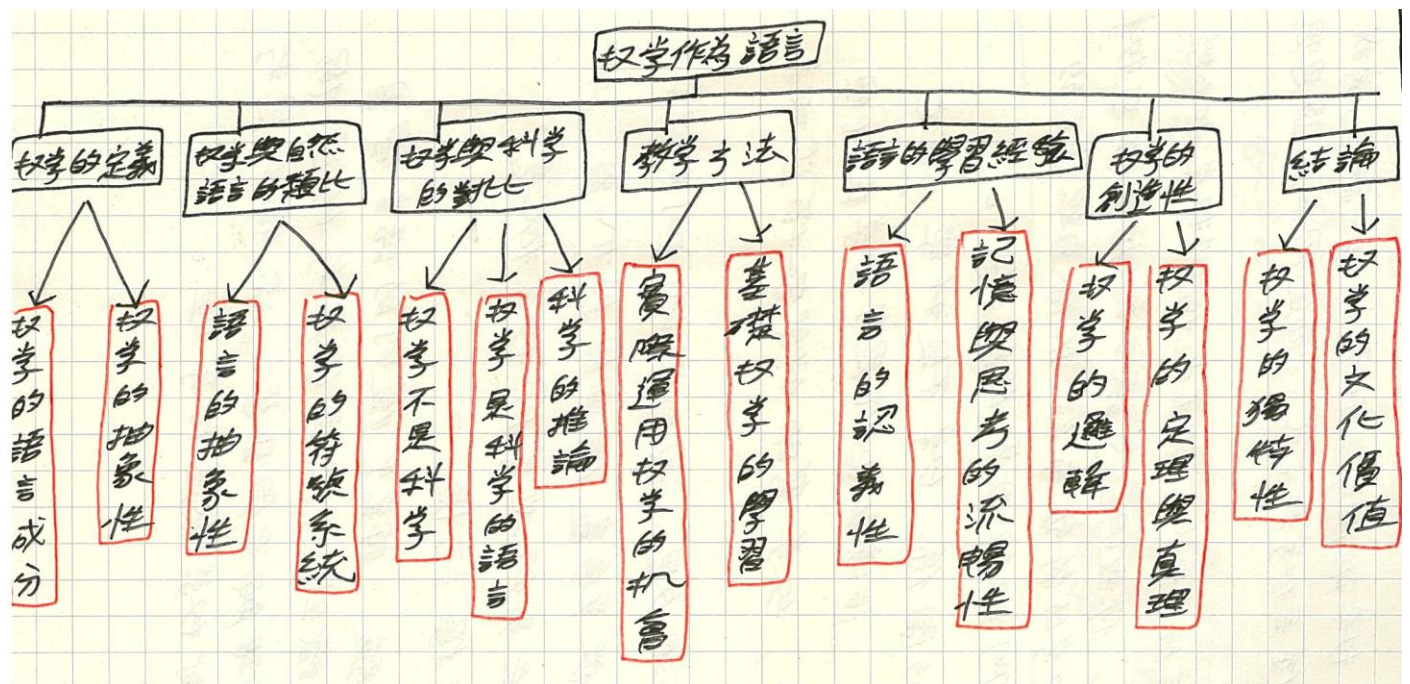 数学作為語言
数学的定義
数学與自然
語言的類比
数学與科学
的對比
教学方法
語言的學習經驗
数学的
創造性
結論
数学的語言成分
数学的抽象性
語言的抽象性
数学的符號系統
数学不是科学
数学是科学的語言
科学的推論
實際運用数学的机會
基礎数学的學習
語言的認義性
記憶與思考的流暢性
数学的邏輯
数学的定理與真理
数学的獨特性
数学的文化價值